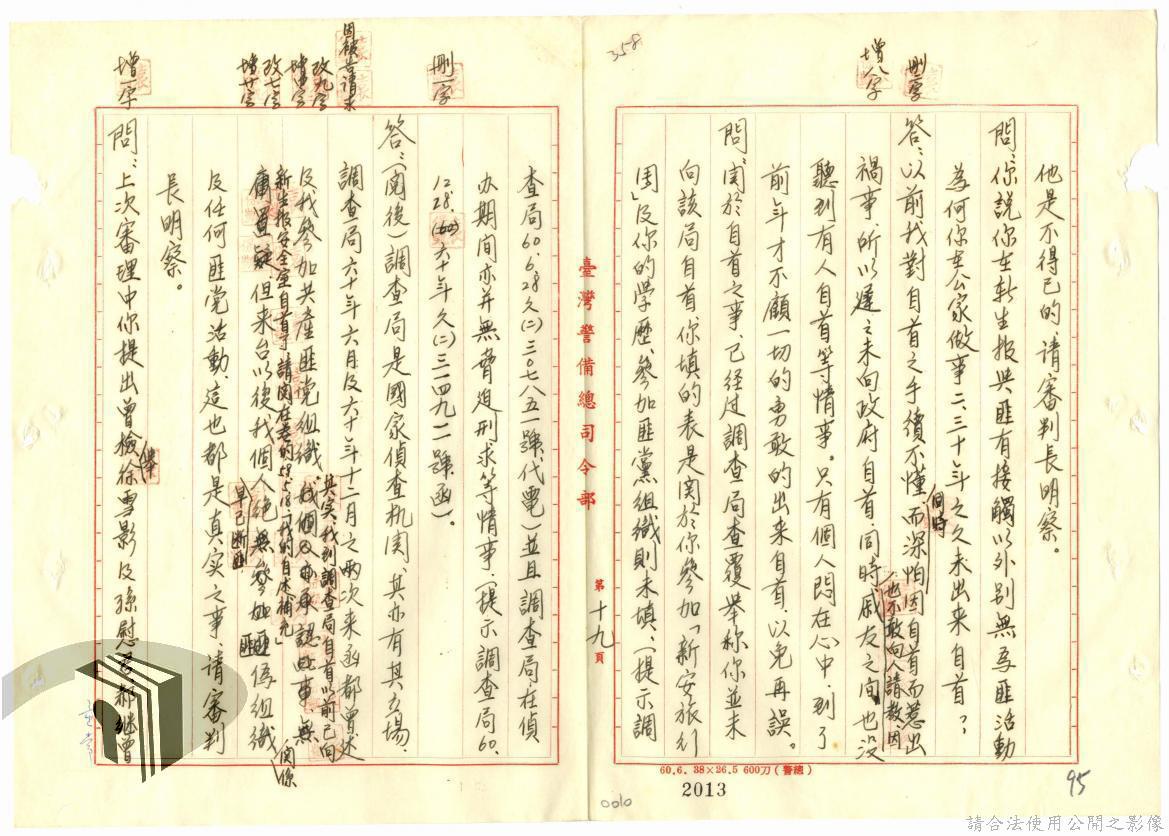 358
刪一字
增八字
他是不得已的,请審判長明察。
問:你說你在新生报與匪有接觸以外,别無為匪活動
為何你在公家做事二、三十年之久未出來自首?
答:以前我對自首之手續不懂,而深怕因自首而惹出
同時
也不敢向人請教,因
禍事所以遲遲未向政府自首,同時,戚友之间也没
聽到有人自首等情事。只有個人悶在心中,到了
前年才不顧一切的勇敢的出来自首,以免再誤。
問:関於自首之事,已经过調查局查覆举称你並未
向該局自首,你填的表是関於你參加「新安旅行
团」及你的学歷、參加匪黨組織則未填,(提示調
臺灣警備總司令部
第十九頁
60.6. 38×26.5 600刀(警總)
2013
0010
95
刪一字
因被告请求
改九字
改七字
增一字
查局60.6.28.久(二)三0七八五一號,代電)並且調查局,在偵
办期间亦并無脅迫刑求等情事,(提示調查局60.
12.28.(60)六十年久(二)三二四九二一號函)。
答:(阅後)調查局是國家偵查机関,其亦有其立場,
調查局六十年六月及六十年十二月之两次来函都曾述
及我參加共產匪党組織。
其实,我到調查局自首以前已向
新生报安全室自首了,請
我的自述補充」
庸置疑,但来台以後,我個人絶無參加匪偽組織
早已断
関係
及任何匪党活動,這也都是真实之事,请審判
長明察。
問:上次審理中你提出曾檢举徐雪影及孫慰君、郝继曾
請合法使用公開之影像